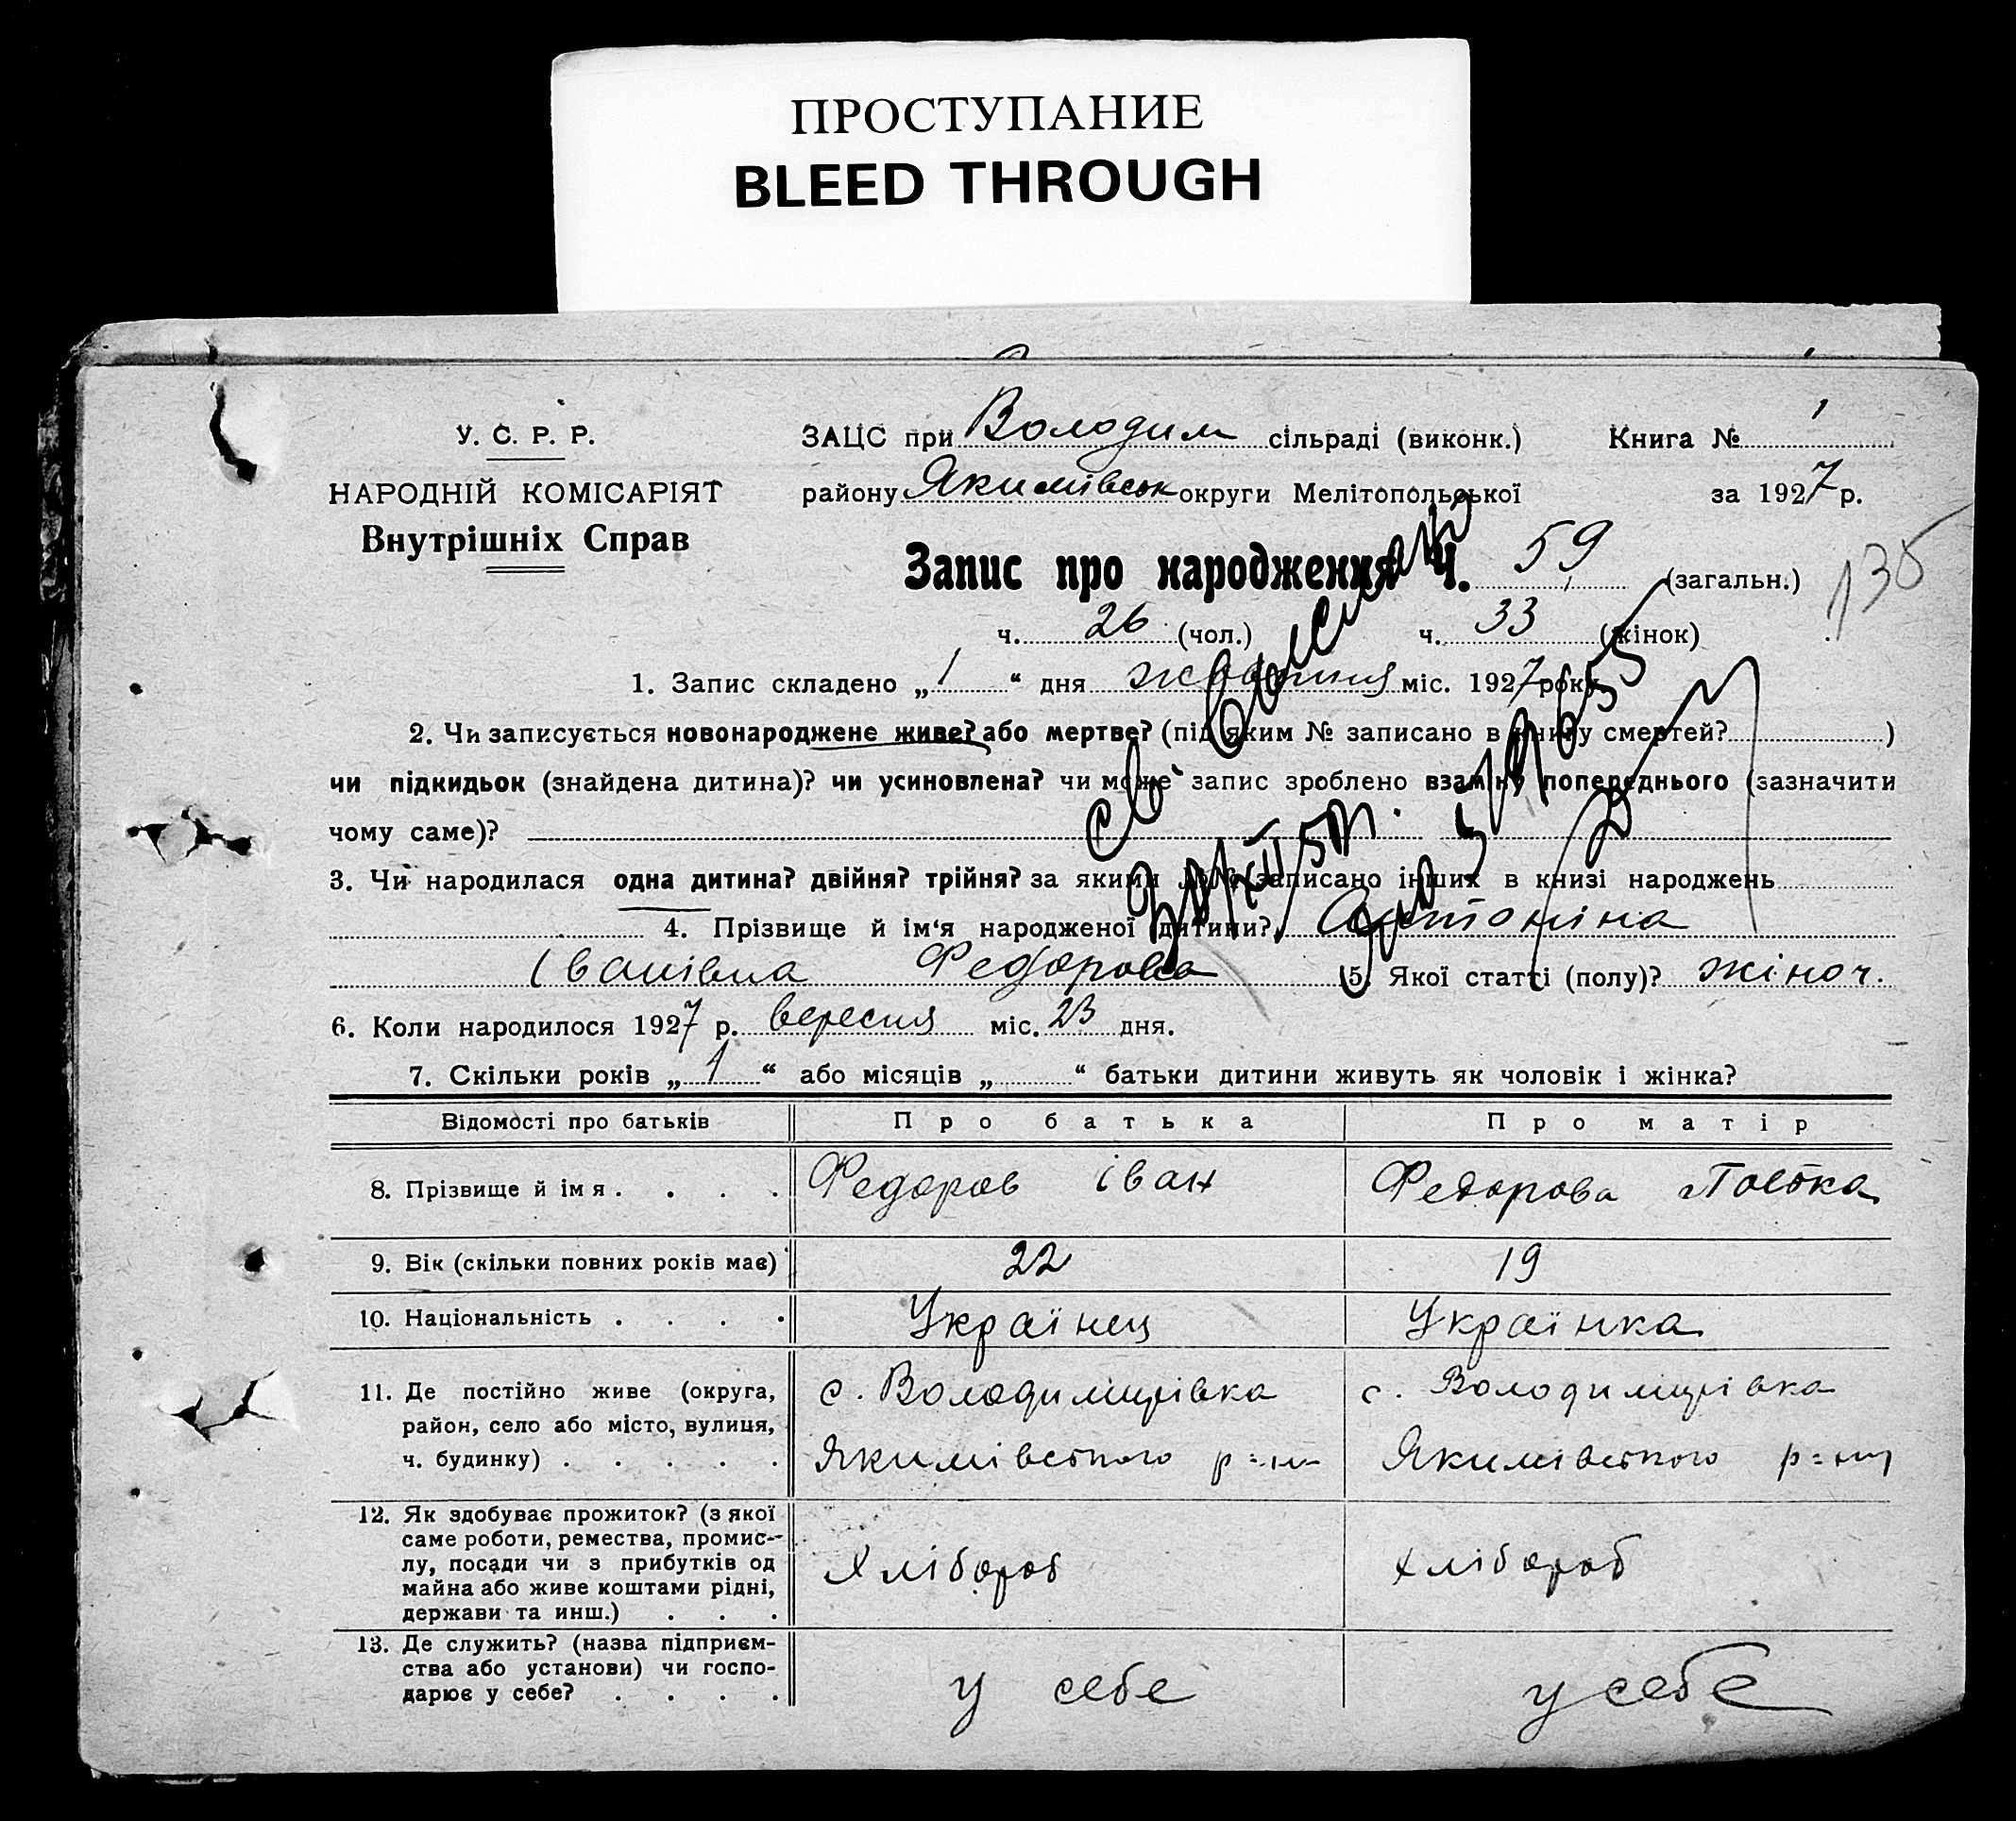 ПРОСТУПАНИЕ
BLEED THROUGH
У. С. Р. Р.
НАРОДНІЙ КОМІСАРІЯТ
Внутрішніх Справ
ЗАЦС при Володим сільраді (виконк.) Книга № 1
району Якимівськ округи Мелітопольської за 1927 р.
Запис про народження ч. 59 (загальн.)
135
ч. 26 (чол.) ч. 33 (жінок)
1. Запис складено „ 1 “ дня жовтня міс. 1927 року
2. Чи записується новонароджене живе? або мертве? (під яким № записано в книгу смертей? )
чи підкидьок (знайдена дитина)? чи усиновлена? чи може запис зроблено взамін попереднього (зазначити
чому саме)?
3. Чи народилася одна дитина? двійня? трійня? за якими записано інших в книзі народжень
4. Прізвище й ім‘я народженої дитини? Антоніна
Іванівна Федорова 5. Якої статті (полу)? жіноч.
6. Коли народилося 1927 р. вересня міс. 23 дня.
7. Скільки років „ 1 “ або місяців „ “ батьки дитини живуть як чоловік і жінка?
Відомості про батьків Про батька Про матір
8. Прізвище й імя . . . . Федоров Іван Федорова
9. Вік (скільки повних років має) 22 19
10. Національність . . . . Українец Українка
11. Де постійно живе (округа, с. Володимирівка с. Володимирівка
район, село або місто, вулиця,
ч. будинку) . . . . . Якимівського р=ну Якимівського р=ну
12. Як здобуває прожиток? (з якої
саме роботи, ремества, промис-
лу, посади чи з прибутків од
майна або живе коштами рідні,
держави та инш.) . . . Хлібороб хлібороб
13. Де служить? (назва підприєм-
ства або установи) чи госпо-
дарює у себе? . . . . у себе у себе